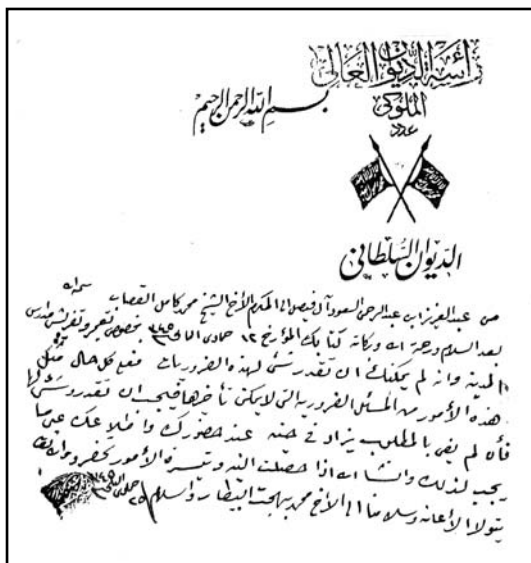 رئاسة الديوان العالي
الملوكي
عدد
بسم الله الرحمن الرحيم
الديوان السلطاني
من عبد العزيز ابن عبد الرحمن السعود آل فيصل الى المكرم الأخ الشيخ محمد كامل القصاب سلمه الله
بعد السلام ورحمة الله وبركاته كتابك المؤرخ ١٢ جمادى ١٣٤٥ بخصوص تعمير وتفريش مدارس
المدينة وانه لم يمكنك ان تقدر شي لهذه الضروريات فعلى كل حال مثل
هذه الأمور من المسائل الضرورية التي لا يمكن تأخيرها فيجب ان تقدروا شي لها
فأن لم يفي بالمطلوب يزاد في حينه عند حضورك واطلاعك على ما
يجب لذلك وانشاء الله اذا حصلت النية وتيسرة الأمور نحضر والله
يتولا الأعانه وسلامنا الى الأخ محمد بهجت البيطار والسلام